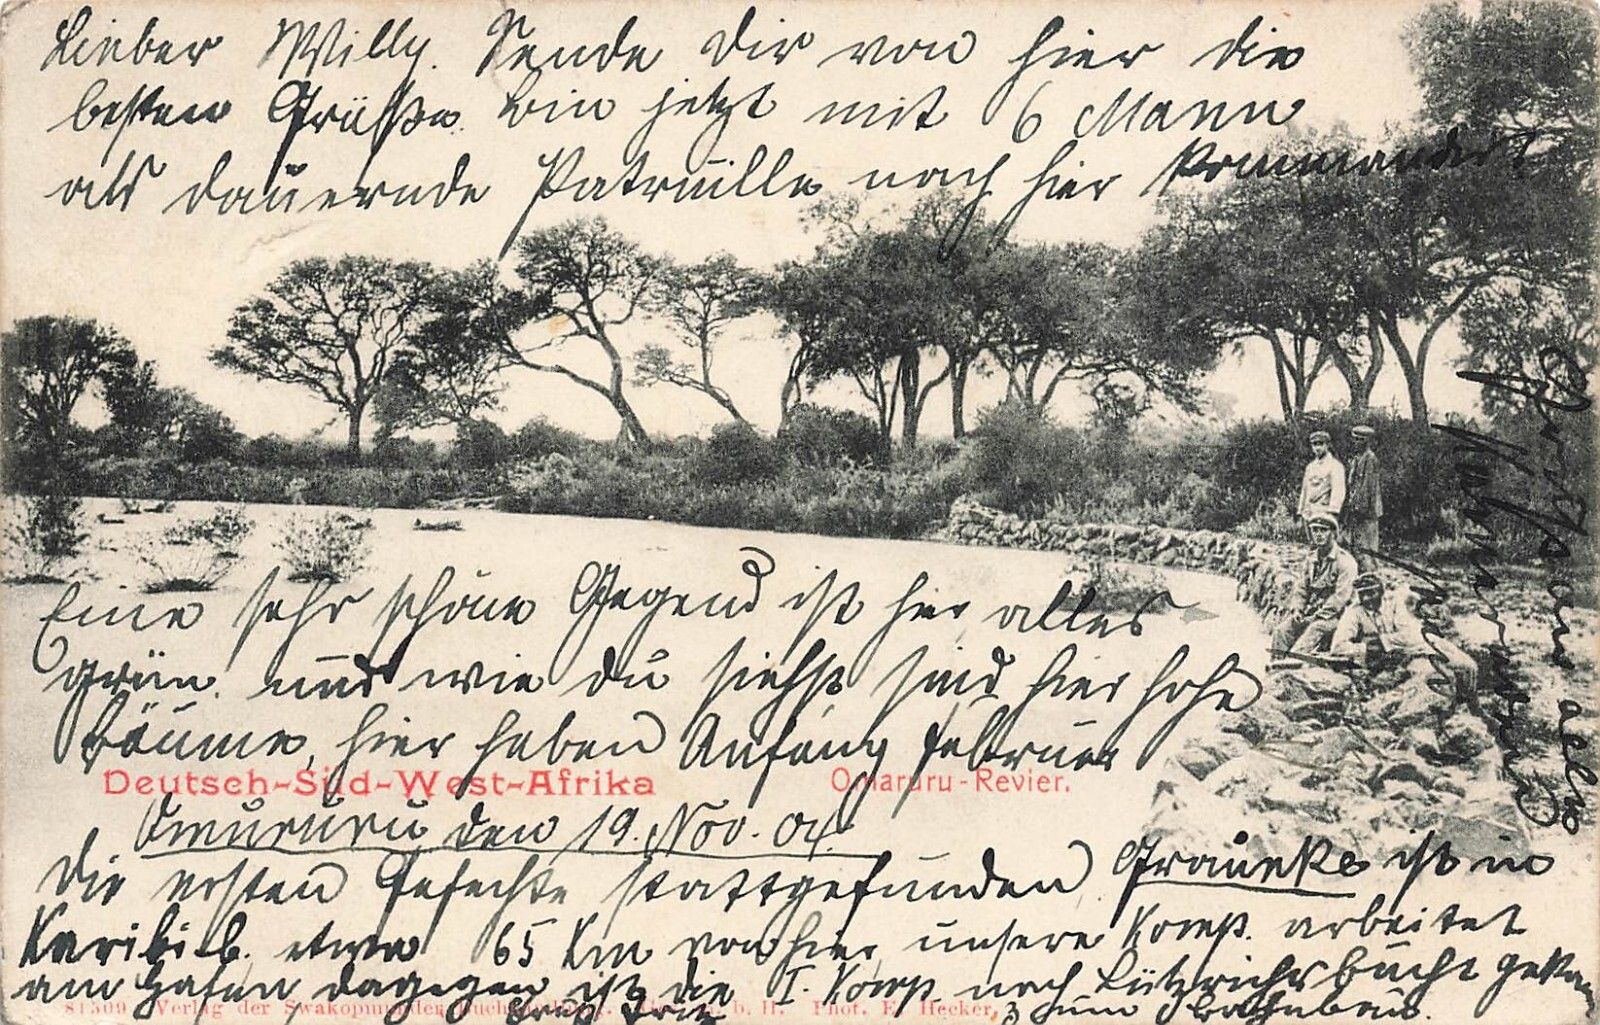 Lieber Willy. Sende Dir von hier die
besten Grüße. bin jetzt mit 6 Mann
als dauernde Patruille nach hier kommandert
Eine sehr schöne Gegend ist hier, alles
grün. und wie du siehst, sind hier hohe
Bäume, hier haben Anfang Februar
Deutsch-Süd-West-Afrika
Omaruru-Revier.
Omururu den 19. Nov. 04.
die ersten Gefechte stattgefunden Graueke ist in
Karibib. etwa 65 Km von hier, unsere Komp. arbeitet
am Hafen dagegen ist die I. Komp nach Lützrichsbucht
81509 Verlag der Swakopmunder Buchhandlung. b. H. Phot. F. Hecker,
Gruß Fritz
z zum Bahnbau.